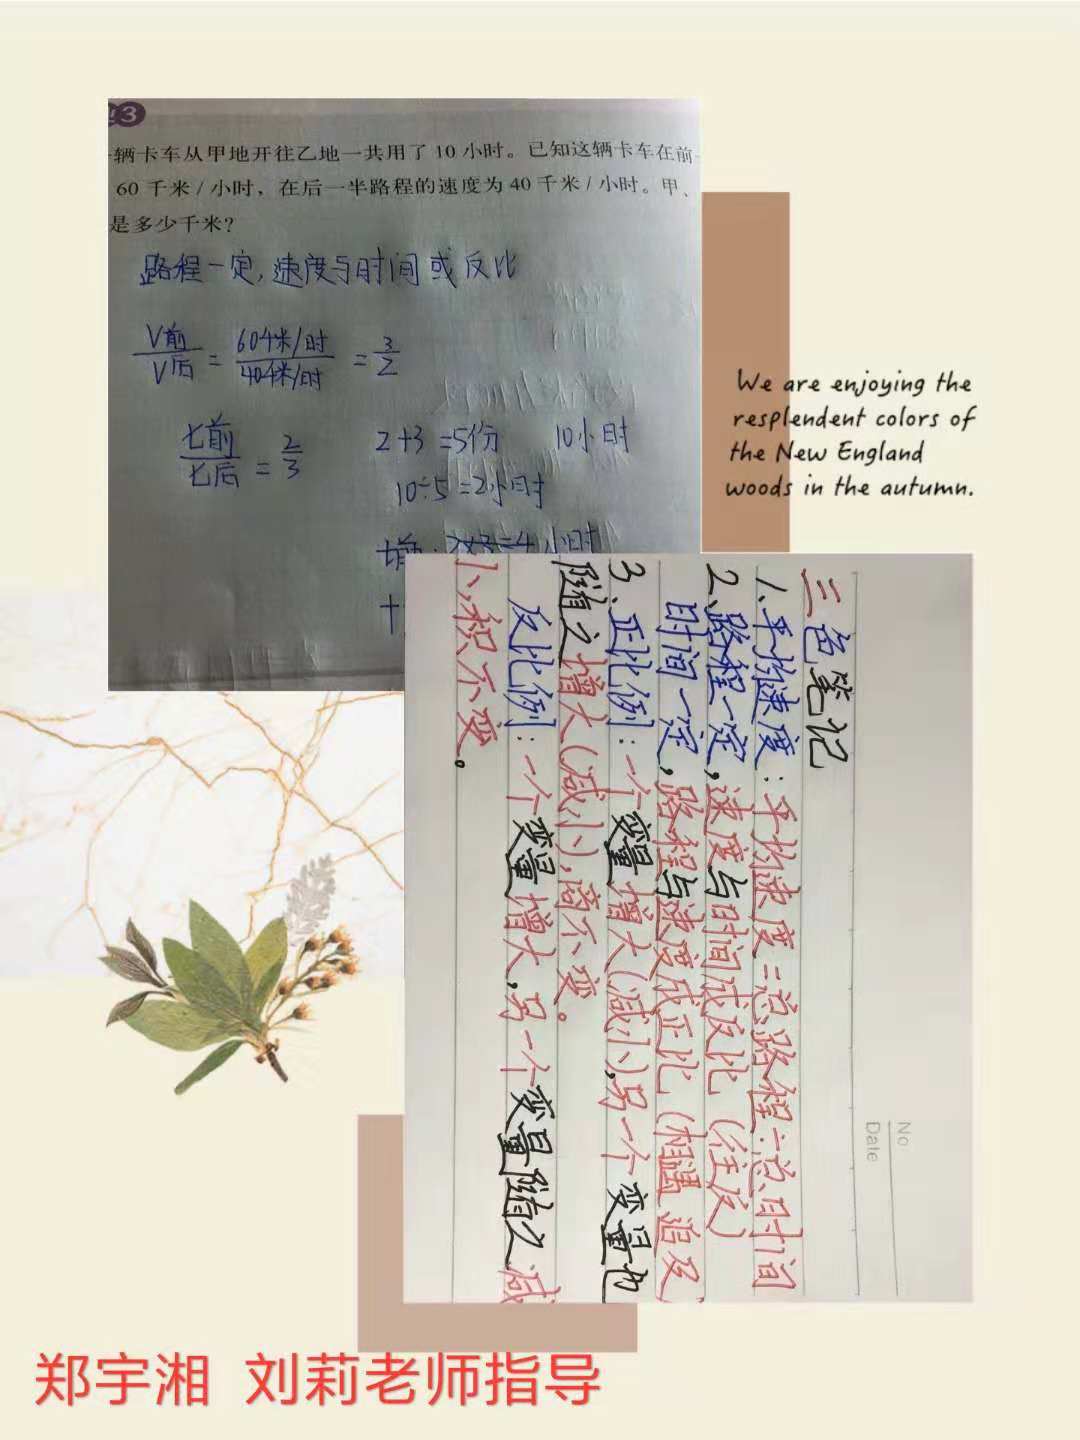 3
一辆卡车从甲地开往乙地一共用了 10 小时。已知这辆卡车在前一
60 千米 / 小时，在后一半路程的速度为 40 千米 / 小时。甲、
是多少千米？
路程一定，速度与时间或反比
V前/V后 = 60千米/时/40千米/时 = 3/2
t前/t后 = 2/3 2+3=5份 10小时
10÷5=2小时
t前：2×2=4小时
We are enjoying the
resplendent colors of
the New England
woods in the autumn.
No
Date
三色笔记
1、平均速度：平均速度=总路程÷总时间
2、路程一定，速度与时间成反比（往反）
时间一定，路程与速度成正比（相遇 追及）
3、正比例：一个变量增大(减小)，另一个变量也
随之增大(减小)，商不变。
反比例：一个变量增大，另一个变量随之减
小，积不变。
郑宇湘 刘莉老师指导